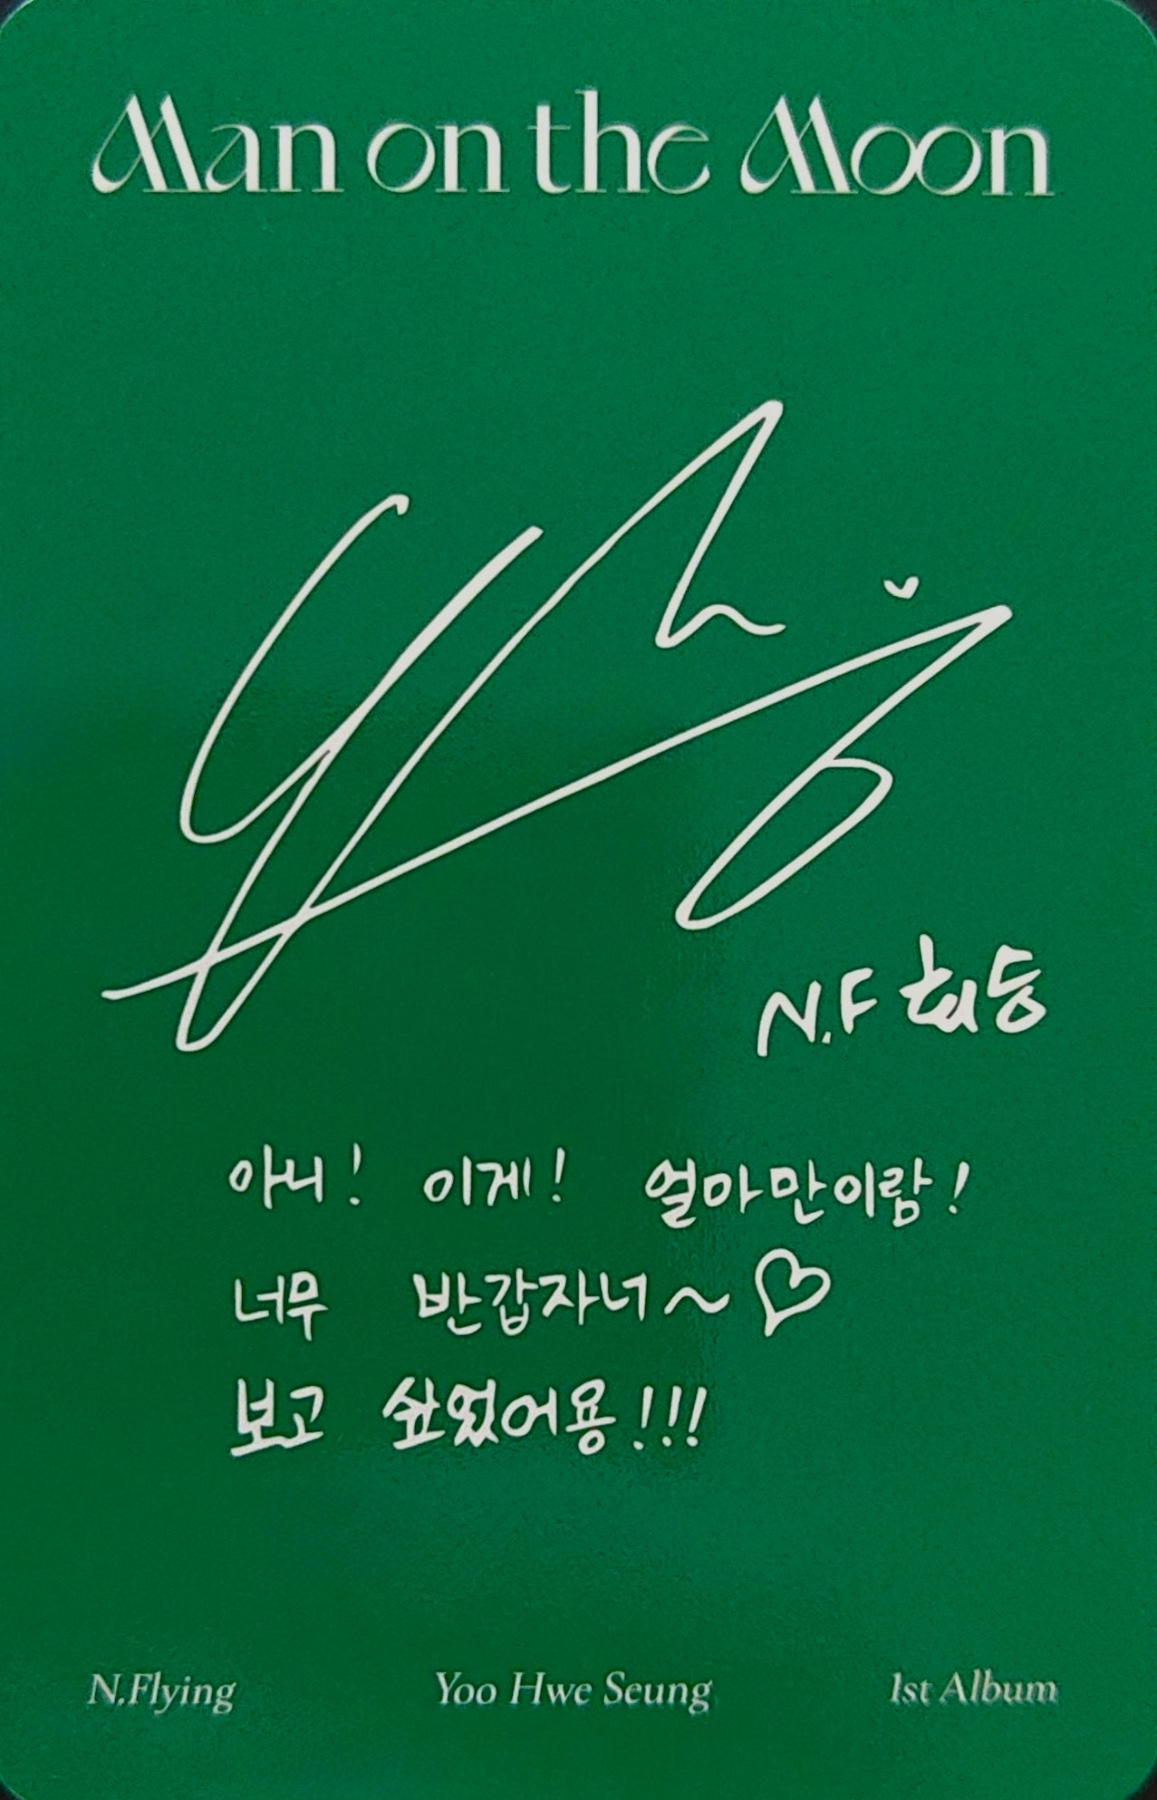 Man on the Moon
N.F 회승
아니! 이게! 얼마만이람!
너무 반갑자너~♡
보고 싶었어용!!!
N.Flying Yoo Hwe Seung 1st Album